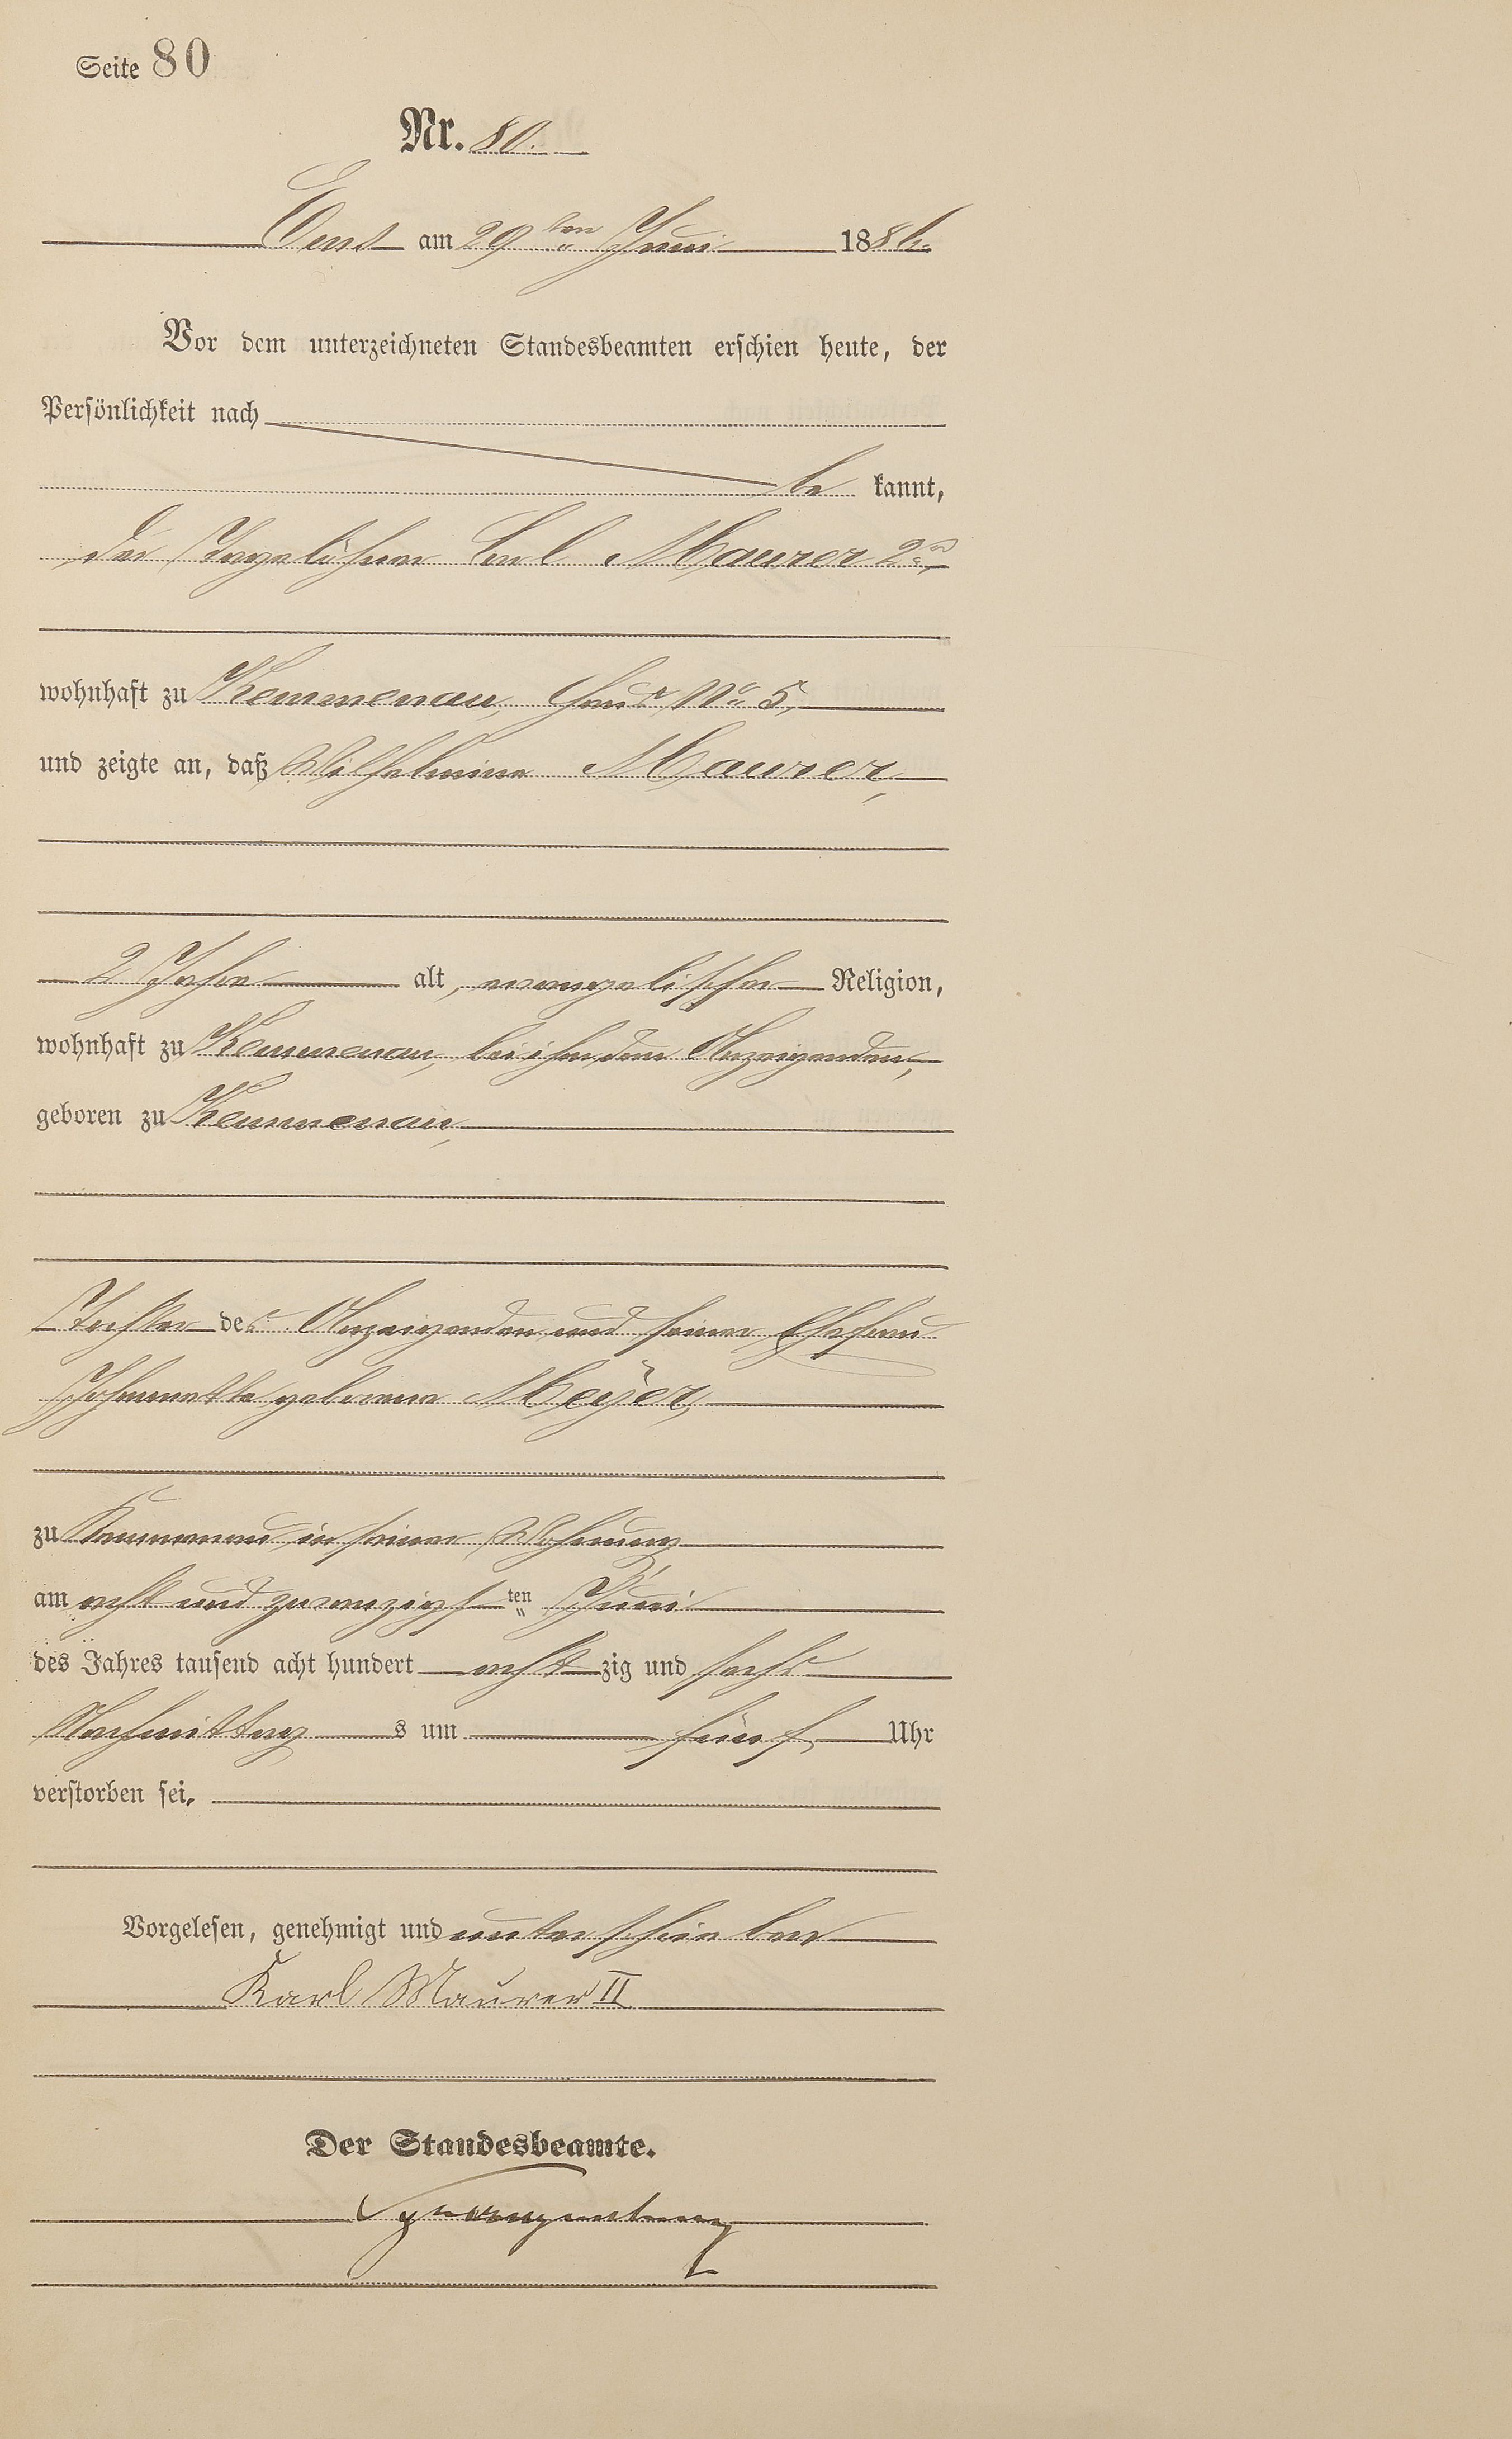 Seite 80
Nr. 80.
Ems am 29ten Juni 1886.
Vor dem unterzeichneten Standesbeamten erschien heute, der
Persönlichkeit nach
be kannt,
der Tagelöhner Carl Maurer 2r,
wohnhaft zu Kemmenau, Haus No 5,
und zeigte an, daß Wilhelmine Maurer,
2 Jahre alt, evangelischer Religion,
wohnhaft zu Kemmenau, bei ihm dem Anzeigenden,
geboren zu Kemmenau,
Tochter des Anzeigenden und seiner Ehefrau
Johannette geborene Meyer,
zu Kemmenau in seiner Wohnung
am acht und zwanzigsten Juni
des Jahres tausend acht hundert acht zig und sechs
Nachmittag s um fünf Uhr
verstorben sei.
Vorgelesen, genehmigt und unterschrieben
Karl Maurer II
Der Standesbeamte.